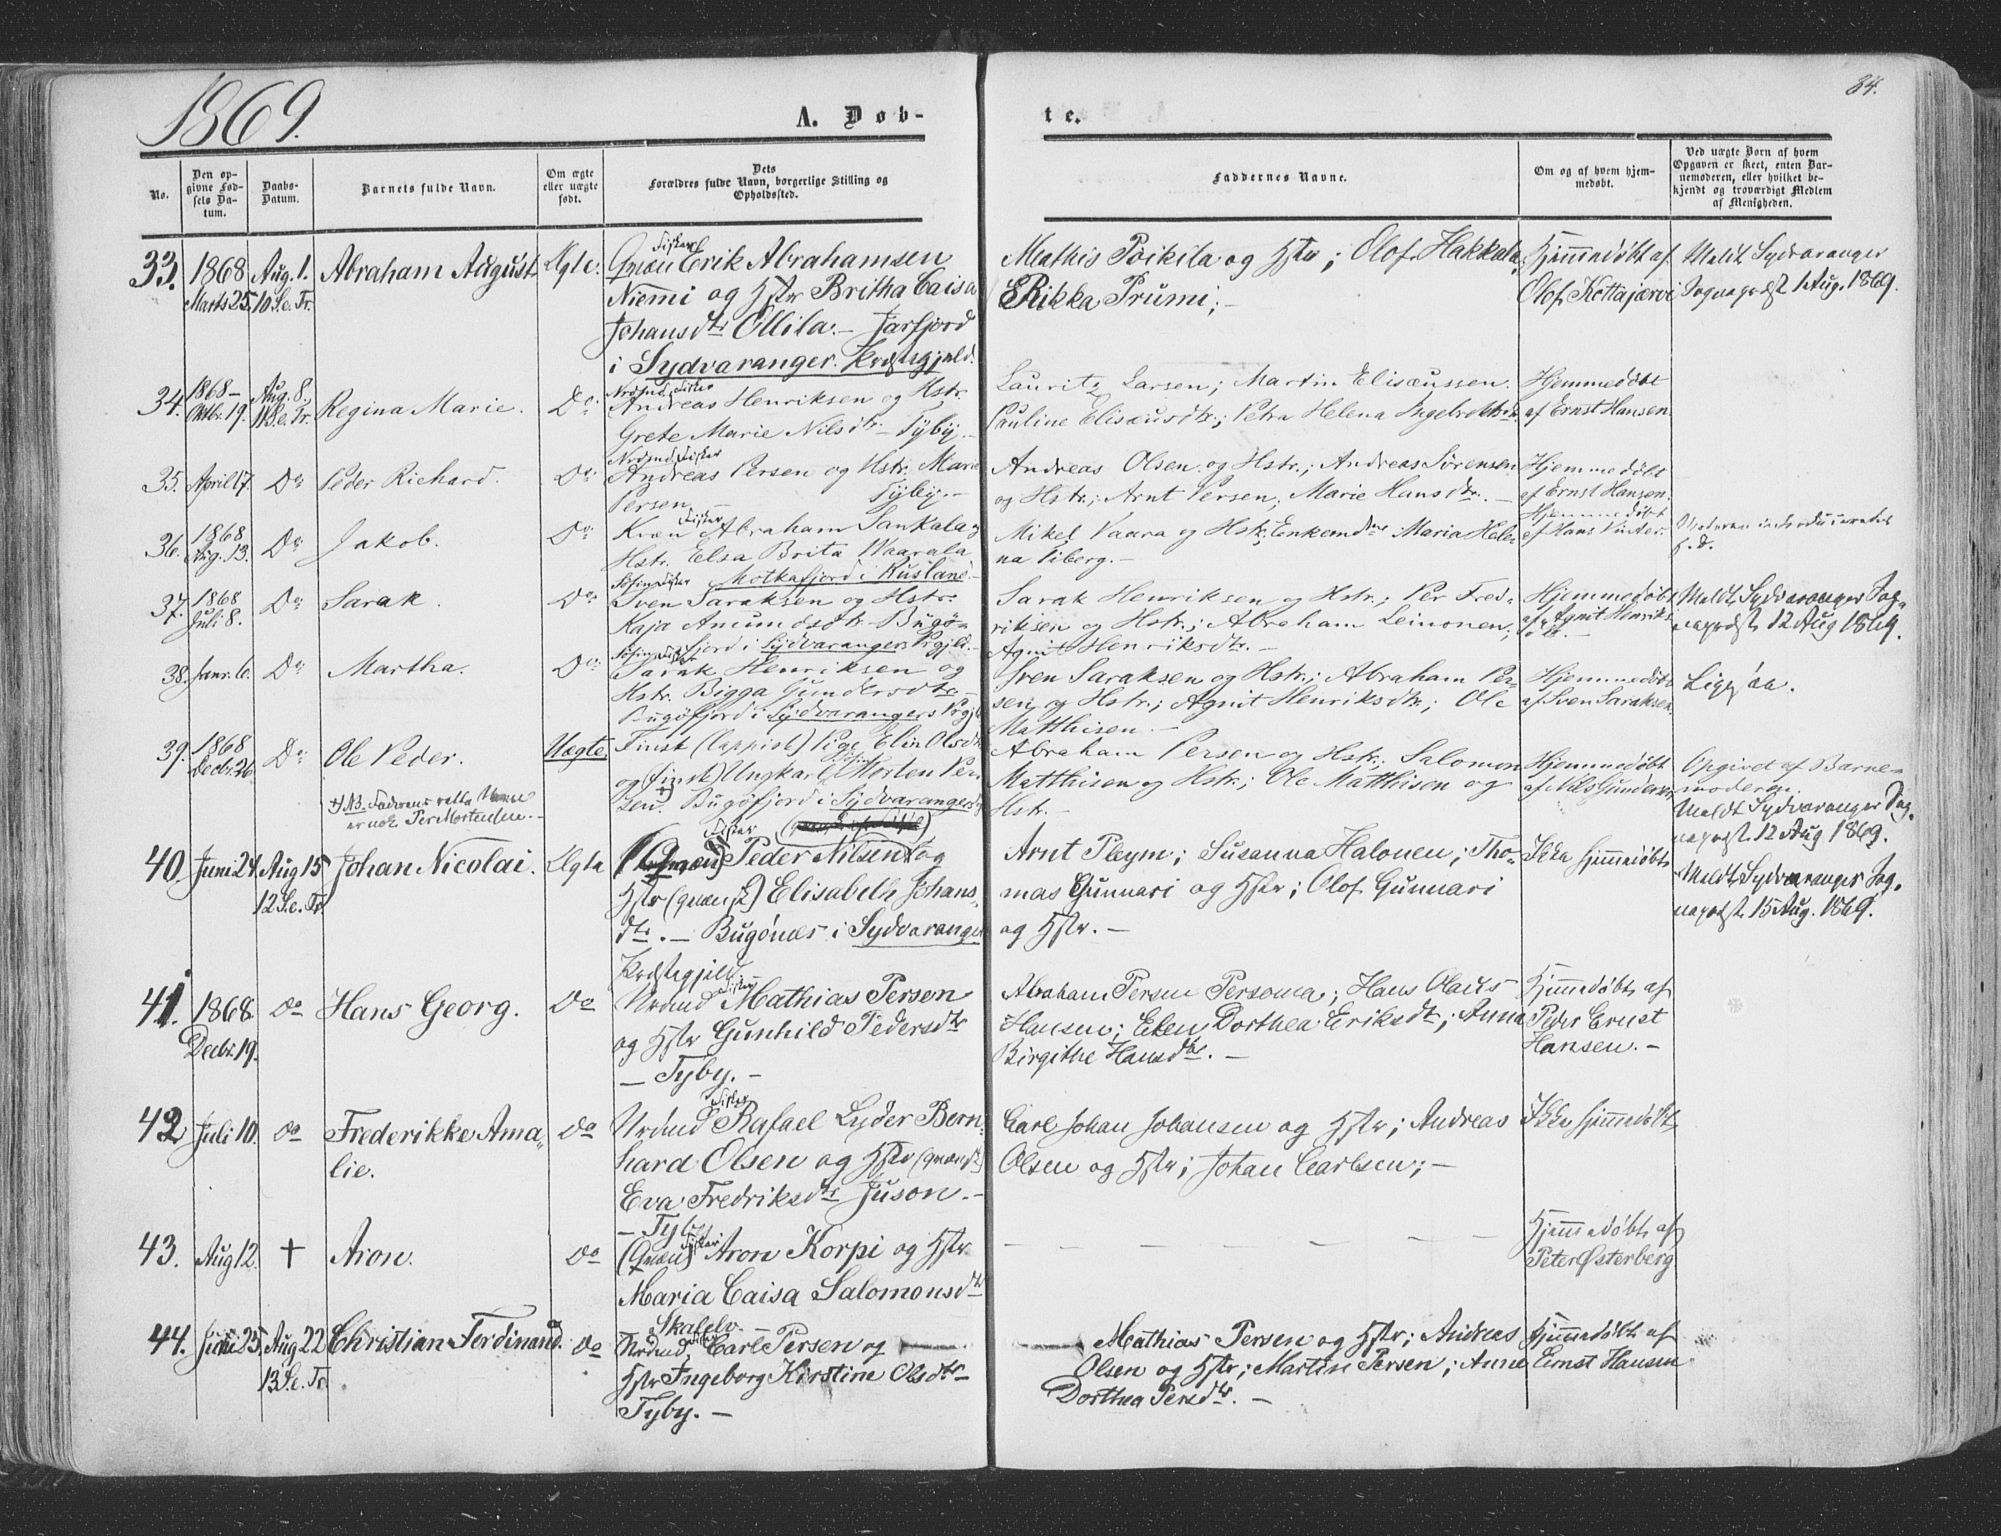 1869.
A. Døb-
te.
34.
No.
Den op-
givne Fød-
sels Da-
tum.
Daabs-
Datum.
Barnets fulde Navn.
Om ægte
eller uægte
født.
Dets
Forældres fulde Navn, borgerlige Stilling og
Opholdssted.
Faddernes Navne.
Om og af hvem hjem-
medøbt.
Ved uægte Børn af hvem
Opgaven er skeet, enten Bar-
nemoderen, eller hvilket be-
kjendt og troværdigt Medlem
af Menigheden.
33. 1868 Marts 25. Aug. 1. 10 S. e. Tr. Abraham August Ægte.
Fisker
Qvæn Erik Abrahamsen
Niemi og Hstr Britha Caisa
Johansdtr Ollila. - Jarfjord
i Sydvaranger. Præstegjæld.
Mathis Poikila og Hstr; Olof Hakkala;
Rikka Prumi; -
Hjemmedøbt af
Olof Kottajærvi
Meldt Sydvaranger
Sognepræst 1 Aug. 1869.
34. 1868 - Oktbr. 19. Aug. 8. 11 S. e. Tr. Regina Marie. Do.
Nordmd Fisker
Andreas Henriksen og Hstr.
Grete Marie Nilsdtr - Tyby. -
Lauritz Larsen; Martin Elisæussen.
Pauline Elisæusdtr; Petra Helena Ingebrektsdtr.
Hjemmedøbt
af Ernst Hansen.
35. April 17. Do Peder Richard. Do.
Nordmd Fisker
Andreas Persen og Hstr. Marie
Persen Tyby. -
Andreas Olsen og Hstr.; Andreas Sørensen
og Hstr.; Arnt Persen, Marie Hansdtr. -
Hjemmedøbt
af Ernst Hansen.
36. 1868 Aug. 13. Do Jakob. Do
Kvæn Fisker Abraham Sankala og
Hstr. Elsa Brita Waarala
Motkafjord i Rusland. -
Mikel Vaara og Hstr; Enkemdn Maria Hele-
na Viberg. -
Hjemmedøbt
af Hans Vinter.
37. 1868 Juli 8. Do Sarak. Do.
Søfin Fisker
Sven Saraksen og Hstr.
Kaja Amundsdtr. - Bugø-
fjord i Sydvaranger Prgjld. -
Sarak Henriksen og Hstr.; Per Fred-
riksen og Hstr.; Abraham Leinonen;
Agnit Henriksdtr. -
Hjemmedøbt
af Agnit Henriks-
dtr. -
Meldt Sydvaranger Sog-
nepræst 12 Aug 1869.
38. Janr. 6. Do Martha. Do.
Søfin Fisker
Sarak Henriksen og
Hstr. Bigga Gundersdtr. -
Bugøfjord i Sydvarangers Prgjld.
Sven Saraksen og Hstr.; Abraham Per-
sen og Hstr.; Agnit Henriksdtr; Ole
Matthisen. -
Hjemmedøbt
af Sven Saraksen.
Ligesaa.
39. 1868 Decbr. 26. Do Ole Peder. Uægte
+) NB. Faderens rette Navn
er nok Per Mortensen. -
Finsk (lappisk) Pige Elin Olsdtr
og (finsk) Ungkarl Morten Per-
sen. Bugøfjord i Sydvaranger
Abraham Persen og Hstr. Salomon
Matthisen og Hstr.; Ole Matthisen og
Hstr. -
Hjemmedøbt
af Nils Gundersen
Opgivet af Barne-
moderen.
Meldt Sydvaranger Sog-
nepræst 12 Aug 1869.
40. Juni 24. Aug 15 12 S. e. Tr. Johan Nicolai. Ægte
Fisker
(Qvæn) Peder Nilsen og
Hstr (qvænsk) Elisabeth Johans-
dtr. - Bugønæs i Sydvaranger
Præstegjæld.
Arnt Pleym; Susanna Halonen; Tho-
mas Gunnari og Hstr; Olof Gunnari
og Hstr. -
Ikke hjemmedøbt
Meldt Sydvaranger Sog-
nepræst 15 Aug. 1869.
41. 1868 Decbr. 19. do Hans Georg. Do
Fisker
Nrdmd Mathias Persen
og Hstr Gunhild Pedersdtr
- Tyby. -
Abraham Persen Persoma; Hans Olaus
Hansen; Elen Dorthea Eriksdtr; Anna
Birgithe Hansdtr. -
Hjemmedøbt af
Peder Ernst
Hansen. -
42 Juli 10. do Frederikke Ama-
lie. do
Fisker
Nrdmd Rafael Lyder Bern-
hard Olsen og Hstr (qvænsk)
Eva Fredriksdtr Juson. -
- Tyby.
Carl Johan Johansen og Hstr; Andreas
Olsen og Hstr; Johan Carlsen; -
Ikke hjemmedøbt,
43. Aug 12. † Aron. do
(Qvæn) Fisker Aron Korpi og Hstr
Maria Caisa Salomonsdtr
Skalelv.
Hjemmedøbt af
Peter Østerberg
44. Juni 25. Aug 22 13 S. e. Tr. Christian Ferdinand. do
Nrdmd Fisker Carl Persen og
Hstr Ingeborg Kirstine Olsdtr -
Tyby. -
Mathias Persen og Hstr; Andreas
Olsen og Hstr; Martin Persen; Anne
Dorthea Persdtr. -
Hjemmedøbt af
Ernst Hansen